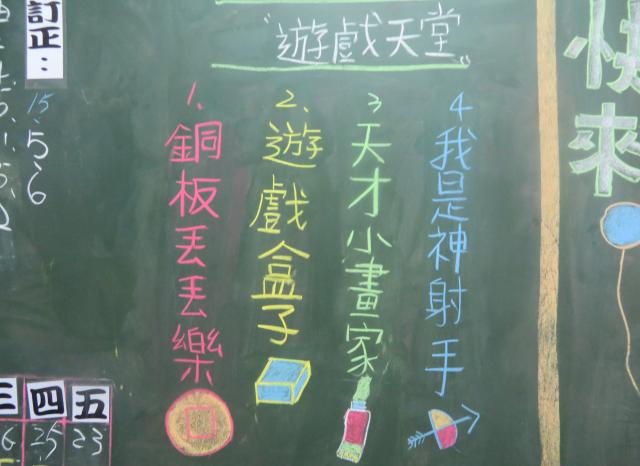 訂正：
15、
5、
6
"遊戲天堂"
1、銅板丟丟樂
2、遊戲盒子
3 天才小畫家
4 我是神射手
快來
三 四 五
6 25 23